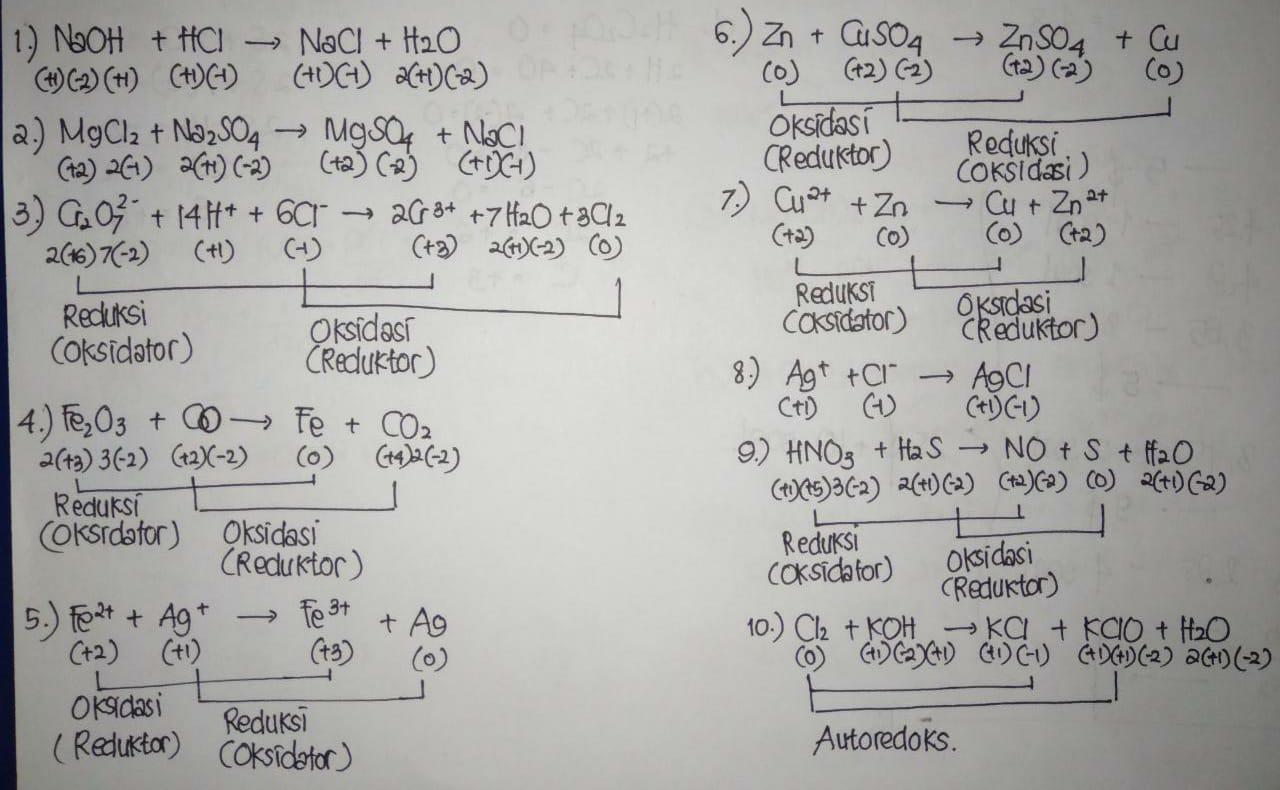 1.) NaOH + HCl → NaCl + H2O
(+1)(-2)(+1) (+1)(-1) (+1)(-1) 2(+1)(-2)
2.) MgCl2 + Na2SO4 → MgSO4 + NaCl
(+2) 2(-1) 2(+1)(-2) (+2)(-2) (+1)(-1)
3.) Cr2O7 2- + 14H+ + 6Cl- → 2Cr3+ + 7H2O + 3Cl2
2(+6) 7(-2) (+1) (-1) (+3) 2(+1)(-2) (0)
Reduksi
(Oksidator)
Oksidasi
(Reduktor)
4.) Fe2O3 + CO → Fe + CO2
2(+3) 3(-2) (+2)(-2) (0) (+4)2(-2)
Reduksi
(Oksidator)
Oksidasi
(Reduktor)
5.) Fe2+ + Ag+ → Fe3+ + Ag
(+2) (+1) (+3) (0)
Oksidasi
(Reduktor)
Reduksi
(Oksidator)
6.) Zn + CuSO4 → ZnSO4 + Cu
(0) (+2)(-2) (+2)(-2) (0)
Oksidasi
(Reduktor)
Reduksi
(Oksidasi)
7.) Cu2+ + Zn → Cu + Zn2+
(+2) (0) (0) (+2)
Reduksi
(Oksidator)
Oksidasi
(Reduktor)
8.) Ag+ + Cl- → AgCl
(+1) (-1) (+1)(-1)
9.) HNO3 + H2S → NO + S + H2O
(+1)(+5)3(-2) 2(+1)(-2) (+2)(-2) (0) 2(+1)(-2)
Reduksi
(Oksidator)
Oksidasi
(Reduktor)
10.) Cl2 + KOH → KCl + KClO + H2O
(0) (+1)(-2)(+1) (+1)(-1) (+1)(+1)(-2) 2(+1)(-2)
Autoredoks.